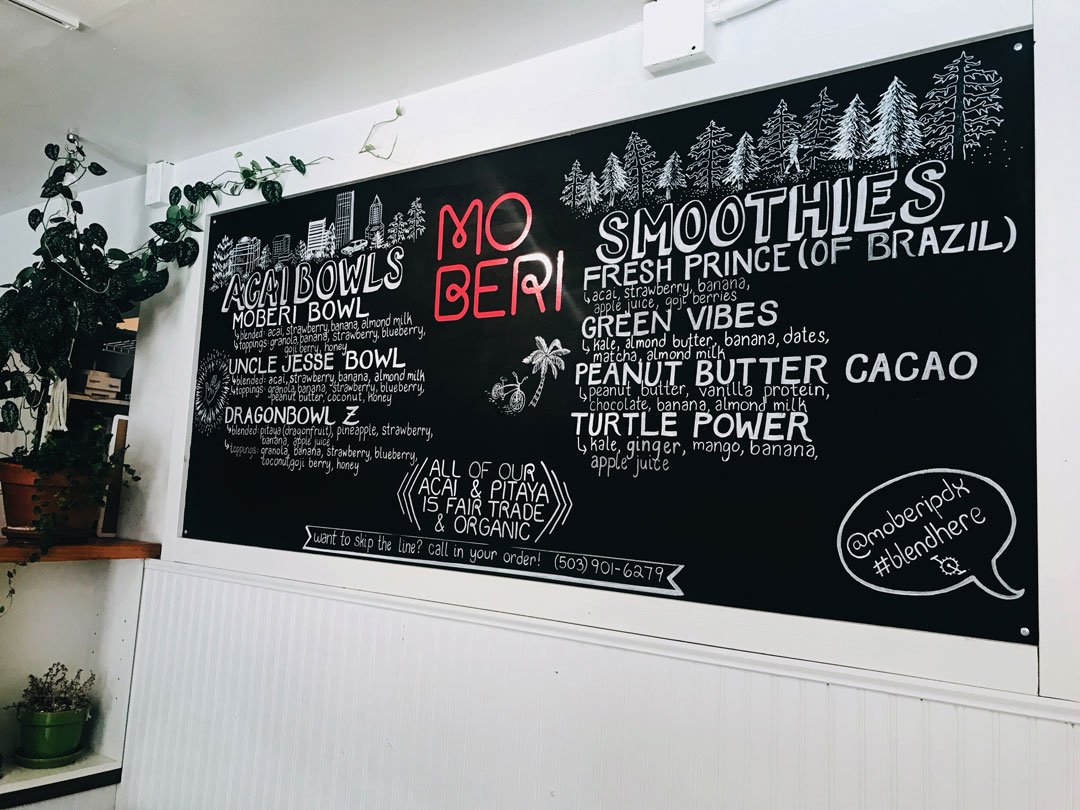 ACAI BOWLS
MOBERI BOWL
blended: acai, strawberry, banana, almond milk
toppings: granola, banana, strawberry, blueberry,
goji berry, honey
UNCLE JESSE BOWL
blended: acai, strawberry, banana, almond milk
toppings: granola, banana, strawberry, blueberry,
peanut butter, coconut, honey
DRAGONBOWL Z
blended: pitaya (dragonfruit), pineapple, strawberry,
banana, apple juice
toppings: granola, banana, strawberry, blueberry,
coconut, goji berry, honey
MO
BERI
SMOOTHIES
FRESH PRINCE (OF BRAZIL)
acai, strawberry, banana,
apple juice, goji berries
GREEN VIBES
kale, almond butter, banana, dates,
matcha, almond milk
PEANUT BUTTER CACAO
peanut butter, vanilla protein,
chocolate, banana, almond milk
TURTLE POWER
kale, ginger, mango, banana,
apple juice
ALL OF OUR
ACAI & PITAYA
IS FAIR TRADE
& ORGANIC
want to skip the line? call in your order! (503) 901-6279
@moberipdx
#blendhere